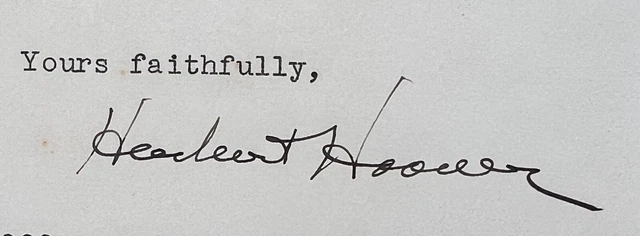 Yours faithfully,
Herbert Hoover